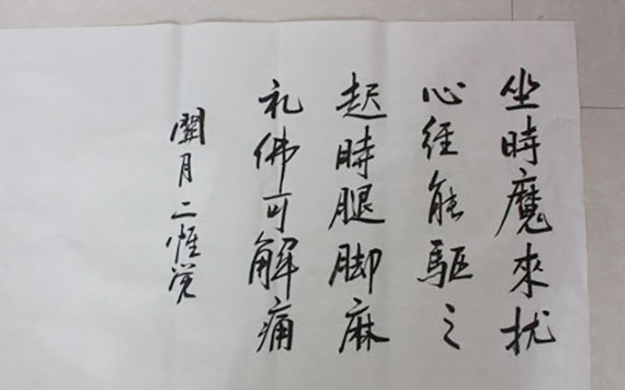 坐時魔來扰
心経能驅之
起時腿脚麻
礼佛可解痛
闗月二惟觉